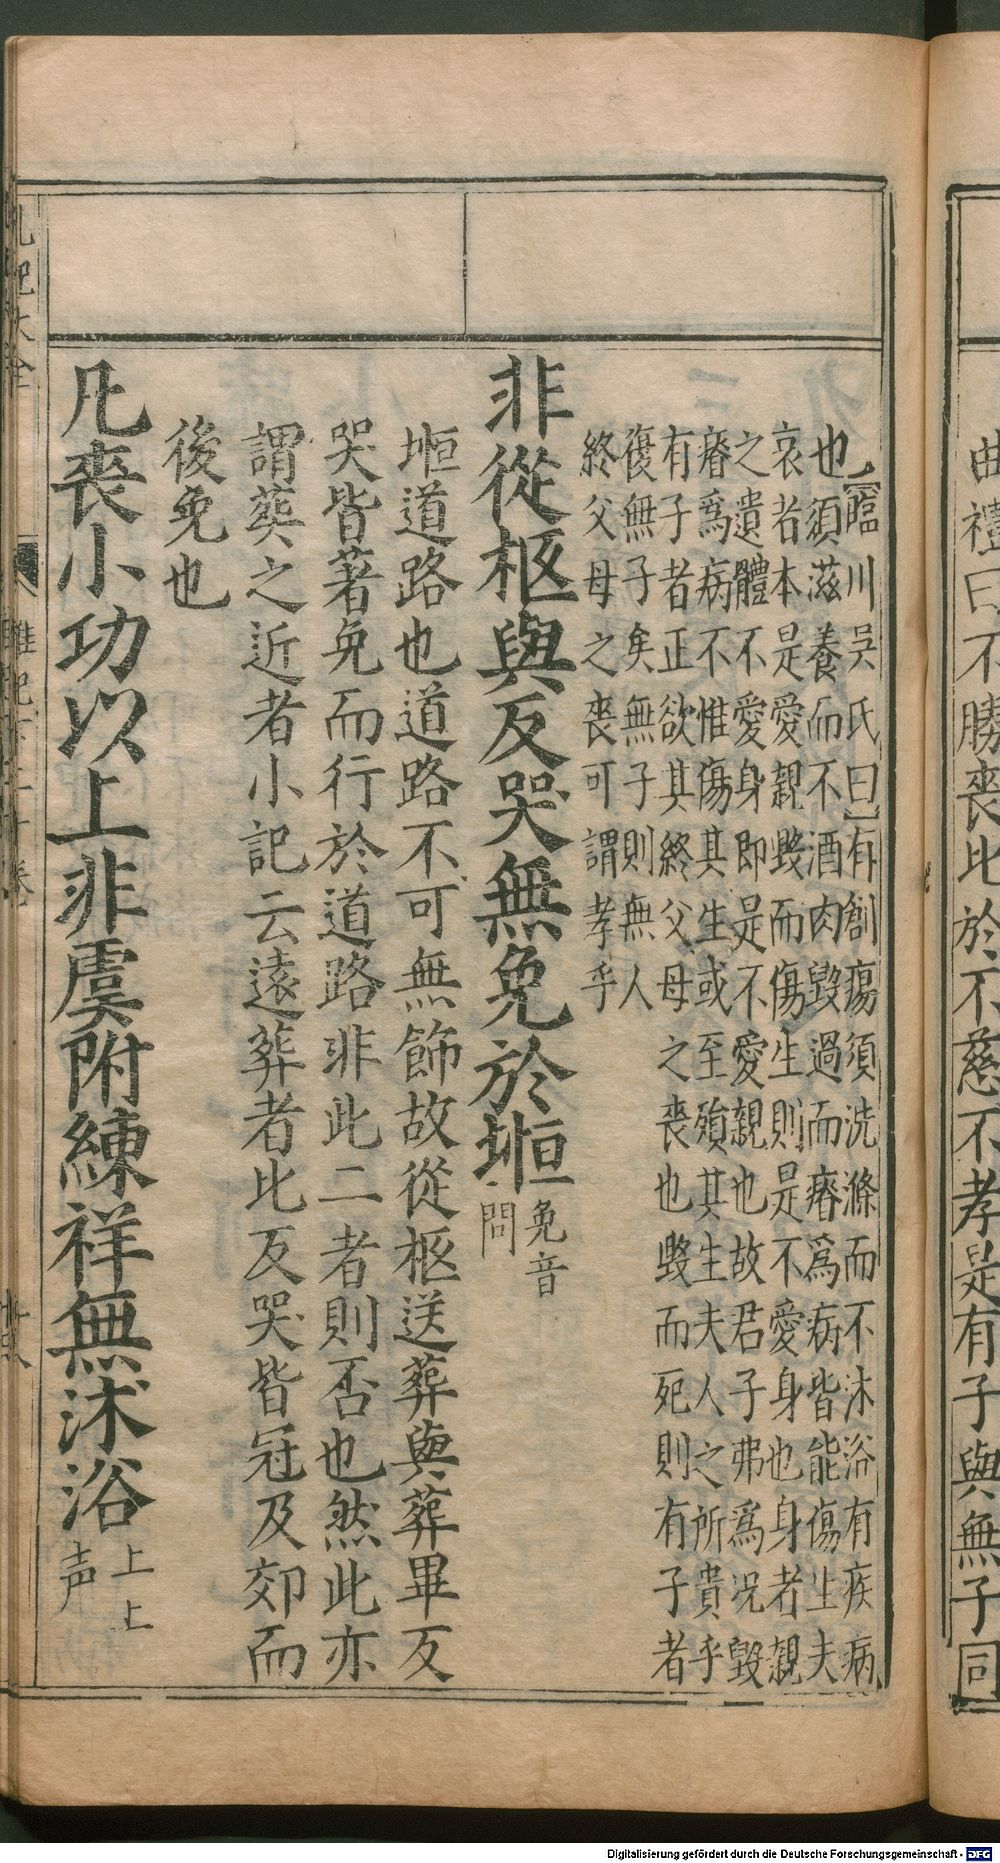 曲禮曰不勝喪比於不慈不孝是有子與無子同
也【臨川吳氏曰】有創瘍須洗滌而不沐浴有疾病
須滋養而不酒肉毀過而瘠為病皆能傷生夫
哀者本是愛親毀而傷生則是不愛身也身者親
之遺體不愛身即是不愛親也故君子弗為況毀
瘠為病不惟傷其生或至殞其生夫人之所貴乎
有子者正欲其終父母之喪也毀而死則有子者
復無子矣無子則無人
終父母之喪可謂孝乎
非從柩與反哭無免於堩免音
問
堩道路也道路不可無飾故從柩送葬與葬畢反
哭皆著免而行於道路非此二者則否也然此亦
謂葬之近者小記云遠葬者比反哭皆冠及郊而
後免也
凡喪小功以上非虞附練祥無沐浴上上
声
Digitalisierung gefördert durch die Deutsche Forschungsgemeinschaft - DFG